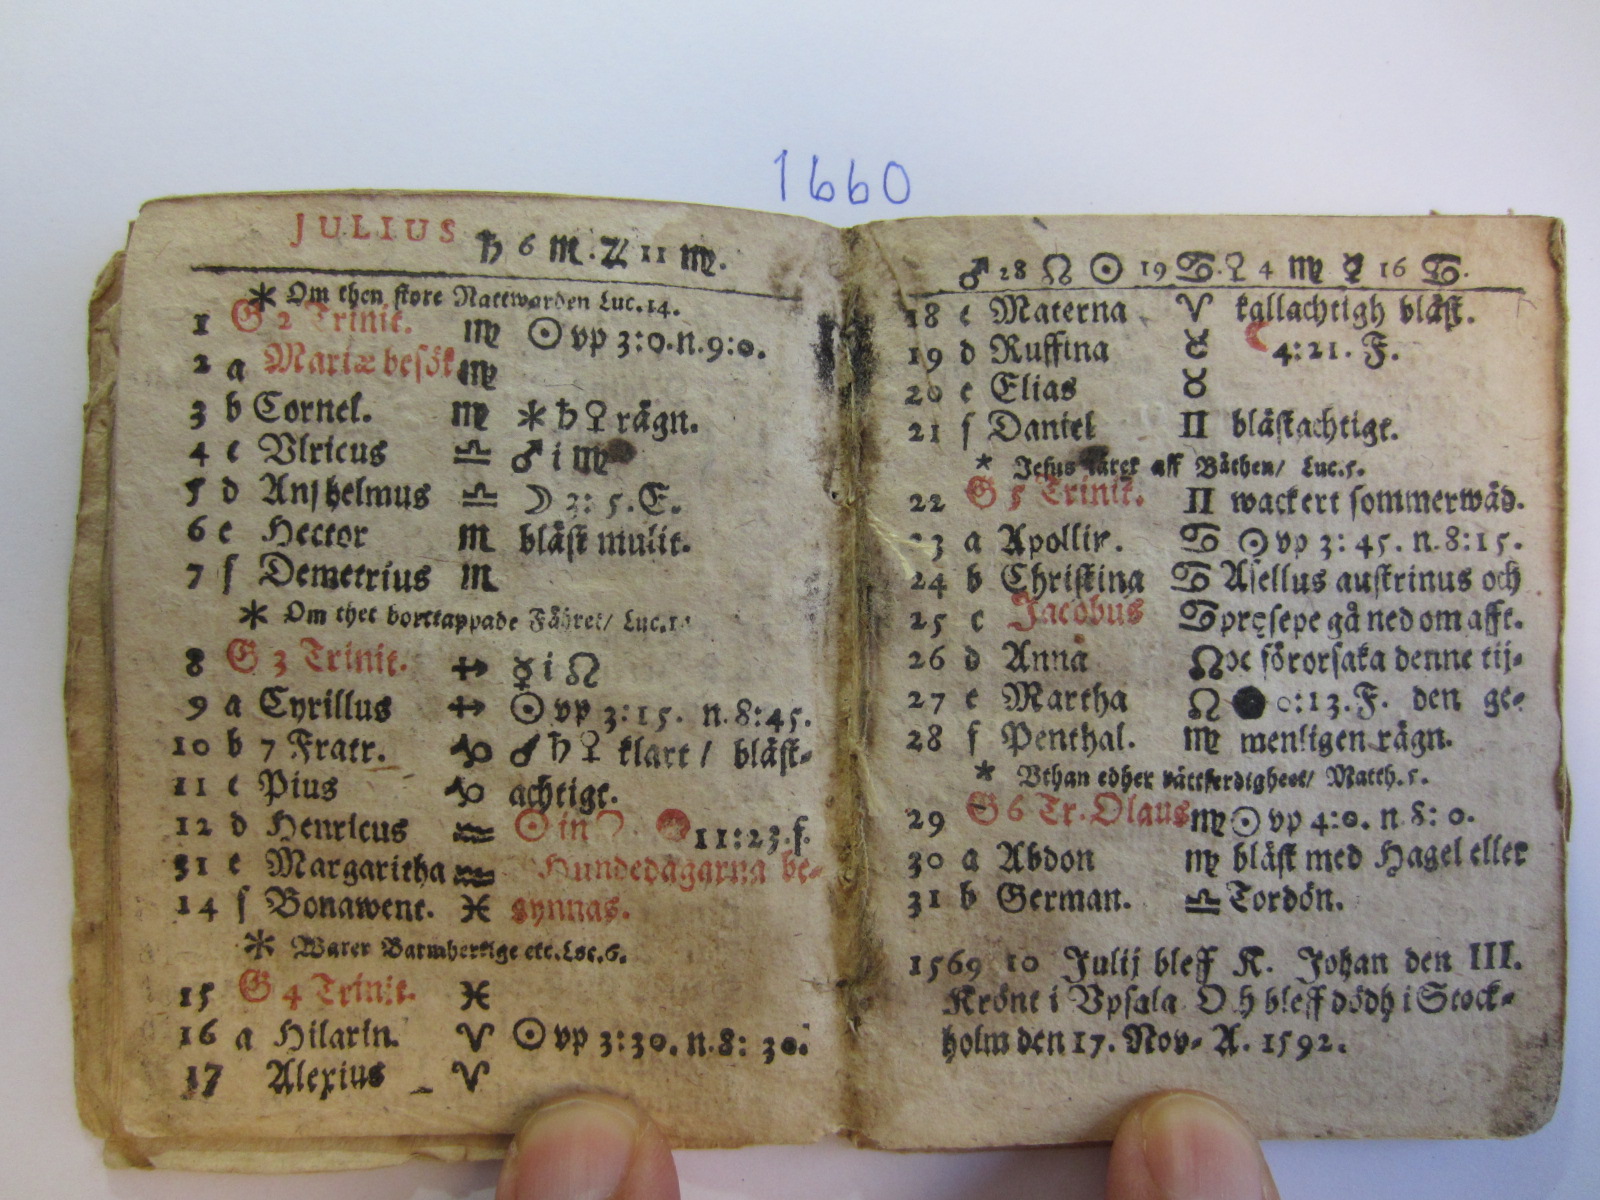 1660
JULIUS ♄ 6 ♏. ♃ 11 ♍.
* Om then store Nattwarden Luc. 14.
1 G 2 Trinit. ♍ ☉ vp 3:0. n. 9:0.
2 a Mariæ besök ♍
3 b Cornel. ♍ * ♄ ♀ rägn.
4 c Vlricus ♎ ♂ i ♍
5 d Anshelmus ♎ ☽ 2: 5. E.
6 e Hector ♏ bläst mulit.
7 f Demetrius ♏
* Om thet borttappade Fåhret/ Luc.
8 G 3 Trinit. ♐ ☿ i ♌
9 a Cyrillus ♐ ☉ vp 3:15. n. 8:45.
10 b 7 Fratr. ♑ ♂ ♄ ♀ klart / bläst-
11 c Pius ♑ achtigt.
12 d Henricus ♒ ☉ in 11:23. f.
31 e Margaritha ♒ Hundedagarna be-
14 f Bonawent. ♓ gynnas.
* Warer Barmhertige etc. Luc. 6.
15 G 4 Trinit. ♓
16 a Hilarin. ♈ ☉ vp 3:30. n. 8: 30.
17 Alexius ♈
♂ 28 ♌ ☉ 19 ♋. ♀ 4 ♍ ☿ 16 ♋.
18 c Materna ♈ kallachtigh bläst.
19 d Ruffina ♉ ☾ 4:21. F.
20 e Elias ♉
21 f Daniel ♊ blästachtigt.
* Jesus lärer aff Båthen/ Luc. 5.
22 G 5 Trinit. ♊ wackert sommerwäd.
23 a Apollin. ♋ ☉ vp 3: 45. n. 8:15.
24 b Christina ♋ Asellus austrinus och
25 c Jacobus ♋ præsepe gå ned om afft.
26 d Anna ♌ oc förorsaka denne tij-
27 e Martha ♌ ● 0:13. F. den ge-
28 f Penthal. ♍ menligen rägn.
* Vthan edher rättferdigheet/ Matth. 5.
29 G 6 Tr. Olaus ♍ ☉ vp 4:0. n 8: 0.
30 a Abdon ♍ bläst med Hagel eller
31 b German. ♎ Tordön.
1569 10 Julij bleff K. Johan den III.
Krönt i Vpsala O h bleff dödh i Stock-
holm den 17. Nov- A. 1592.